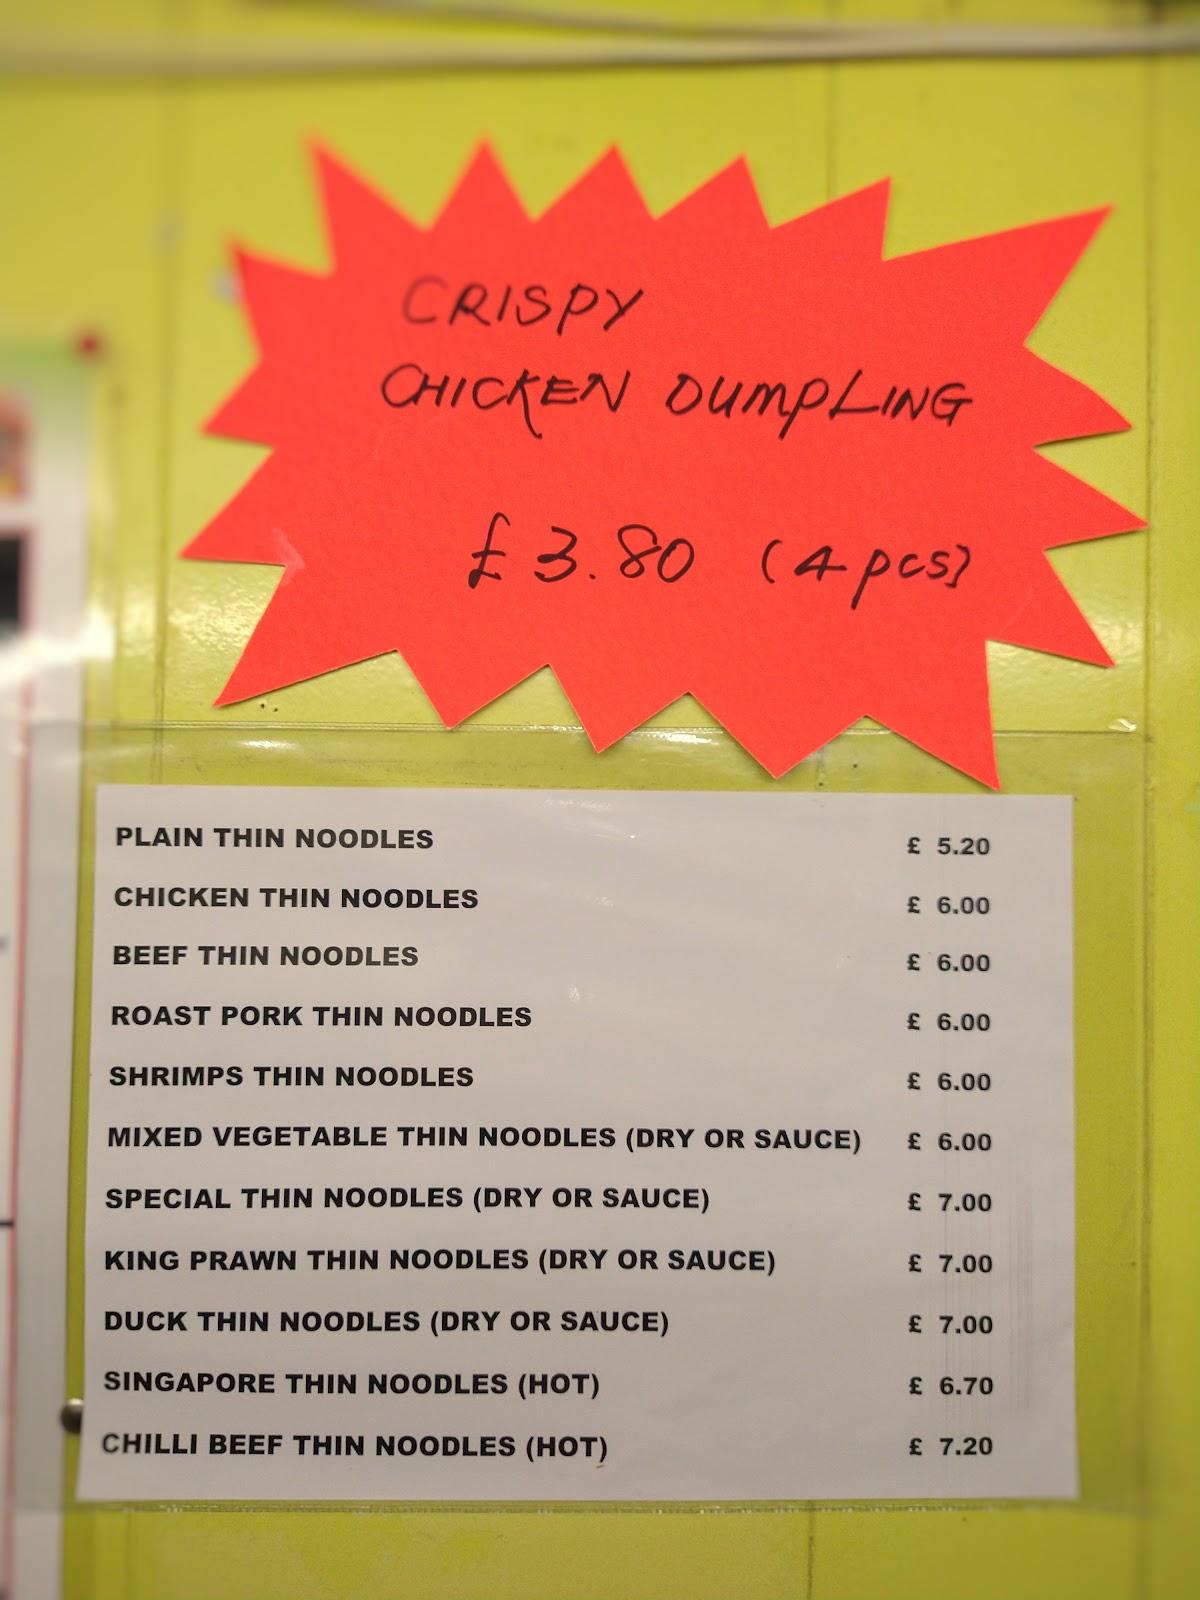 CRISPY
CHICKEN DUMPLING
£3.80 (4pcs)
PLAIN THIN NOODLES £ 5.20
CHICKEN THIN NOODLES £ 6.00
BEEF THIN NOODLES £ 6.00
ROAST PORK THIN NOODLES £ 6.00
SHRIMPS THIN NOODLES £ 6.00
MIXED VEGETABLE THIN NOODLES (DRY OR SAUCE) £ 6.00
SPECIAL THIN NOODLES (DRY OR SAUCE) £ 7.00
KING PRAWN THIN NOODLES (DRY OR SAUCE) £ 7.00
DUCK THIN NOODLES (DRY OR SAUCE) £ 7.00
SINGAPORE THIN NOODLES (HOT) £ 6.70
CHILLI BEEF THIN NOODLES (HOT) £ 7.20